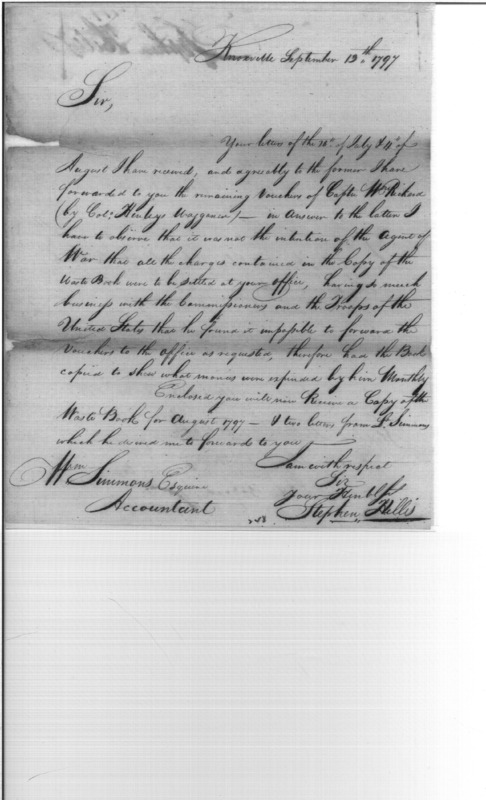 Knoxville September 13th 1797
Sir,
Your letters of the 14th of July & 4th of
August I have received, and agreeably to the former I have
forwarded to you the remaining Vouchers of Captn Wm Rickard
(by Colo. Henleys Waggoner) — in answer to the latter I
have to observe that it was not the intention of the Agent of
War that all the charges contained in the Copy of the
Waste Book were to be settled at your office, having so much
business with the Commissioners and the Troops of the
United States that he found it impossible to forward the
Vouchers to the office as requested, therefore had the Book
copied to shew what monies were expended by him Monthly
Enclosed you will now Receive a Copy of the
Waste Book for August 1797 — & two letters from Lt. Simmons
which he desired me to forward to you —
I am with respect
Sir
Your Hmbl St
Stephen Hillis
Wm Simmons Esquire
Accountant